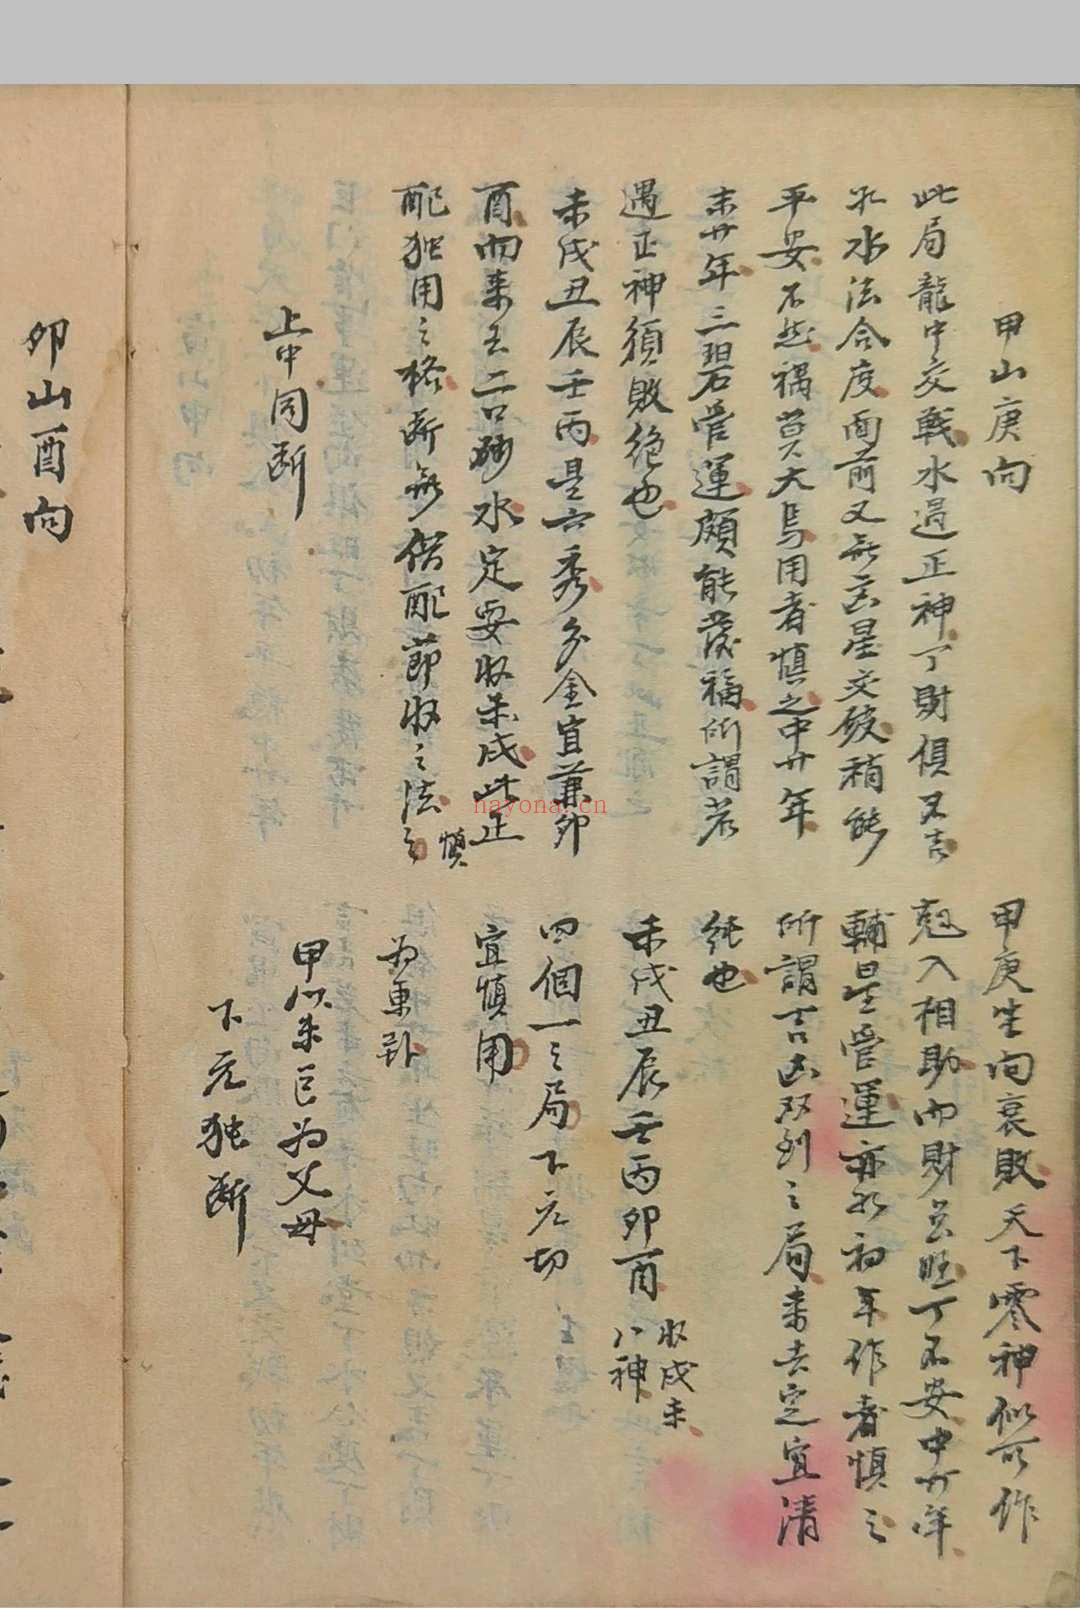 甲山庚向
此局龍中交戰水遇正神丁財俱不吉
水法合度面前又無凶星交破稍能
平安不然禍莫大焉用者慎之中廿年
末廿年三碧管運頗能發福所謂若
遇正神須敗絕也
未戌丑辰壬丙是六秀分金宜兼卯
酉向來去二口砂水定要收未戌此正
配独用之格断無借配節收之法
慎之
上中同断
甲庚坐向衰敗天下零神似可作
尅入相助而財总旺丁不安中廿年
輔星管運亦如初年作者慎之
所謂吉凶双到之局来去定宜清
純也
未戌丑辰壬丙卯酉
收戌未
八神
四個一之局下元切
宜慎用
为東卦
甲以未巳为父毋
下元独断
卯山酉向
nayona.cn